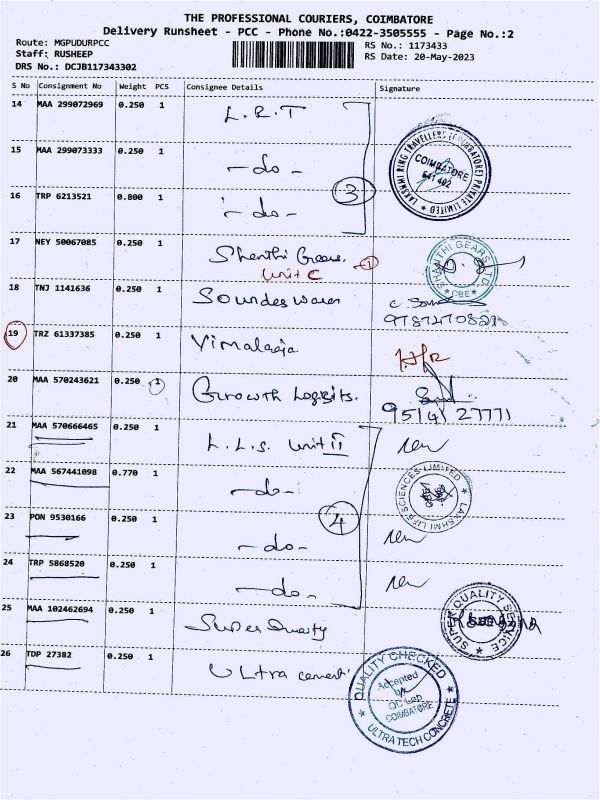 THE PROFESSIONAL COURIERS, COIMBATORE
Delivery Runsheet - PCC - Phone No.:0422-3505555 - Page No.:2
Route: MGPUDURPCC
RS No.: 1173433
Staff: RUSHEEP
RS Date: 20-May-2023
DRS No.: DCJB117343302
S No Consignment No Weight PCS Consignee Details Signature
14 MAA 299072969 0.250 1 L.R.T
15 MAA 299073333 0.250 1 -do-
3
LAKSHMI RING TRAVELLERS (COIMBATORE) PRIVATE LIMITED
COIMBATORE
641 402
16 TRP 6213521 0.800 1 -do-
17 NEY 50067085 0.250 1 Shanthi Gears. 1
Unit C
SHANTHI GEARS LTD
CBE
18 TNJ 1141636 0.250 1 Soundeswaran
19 TRZ 61337385 0.250 1 Vimalraja
20 MAA 570243621 0.250 1 Growth Logists.
21 MAA 570666465 0.250 1 L.L.S. Unit II
22 MAA 567441098 0.770 1 -do-
4
LAKSHMI LIFE SCIENCES LIMITED
23 PON 9530166 0.250 1 -do-
24 TRP 5868520 0.250 1 -do-
25 MAA 102462694 0.250 1 Super Quality
SUPER QUALITY SERVICE
26 TDP 27382 0.250 1 Ultra cement
QUALITY CHECKED
Accepted
by
QC Dep
COIMBATORE
ULTRA TECH CONCRETE